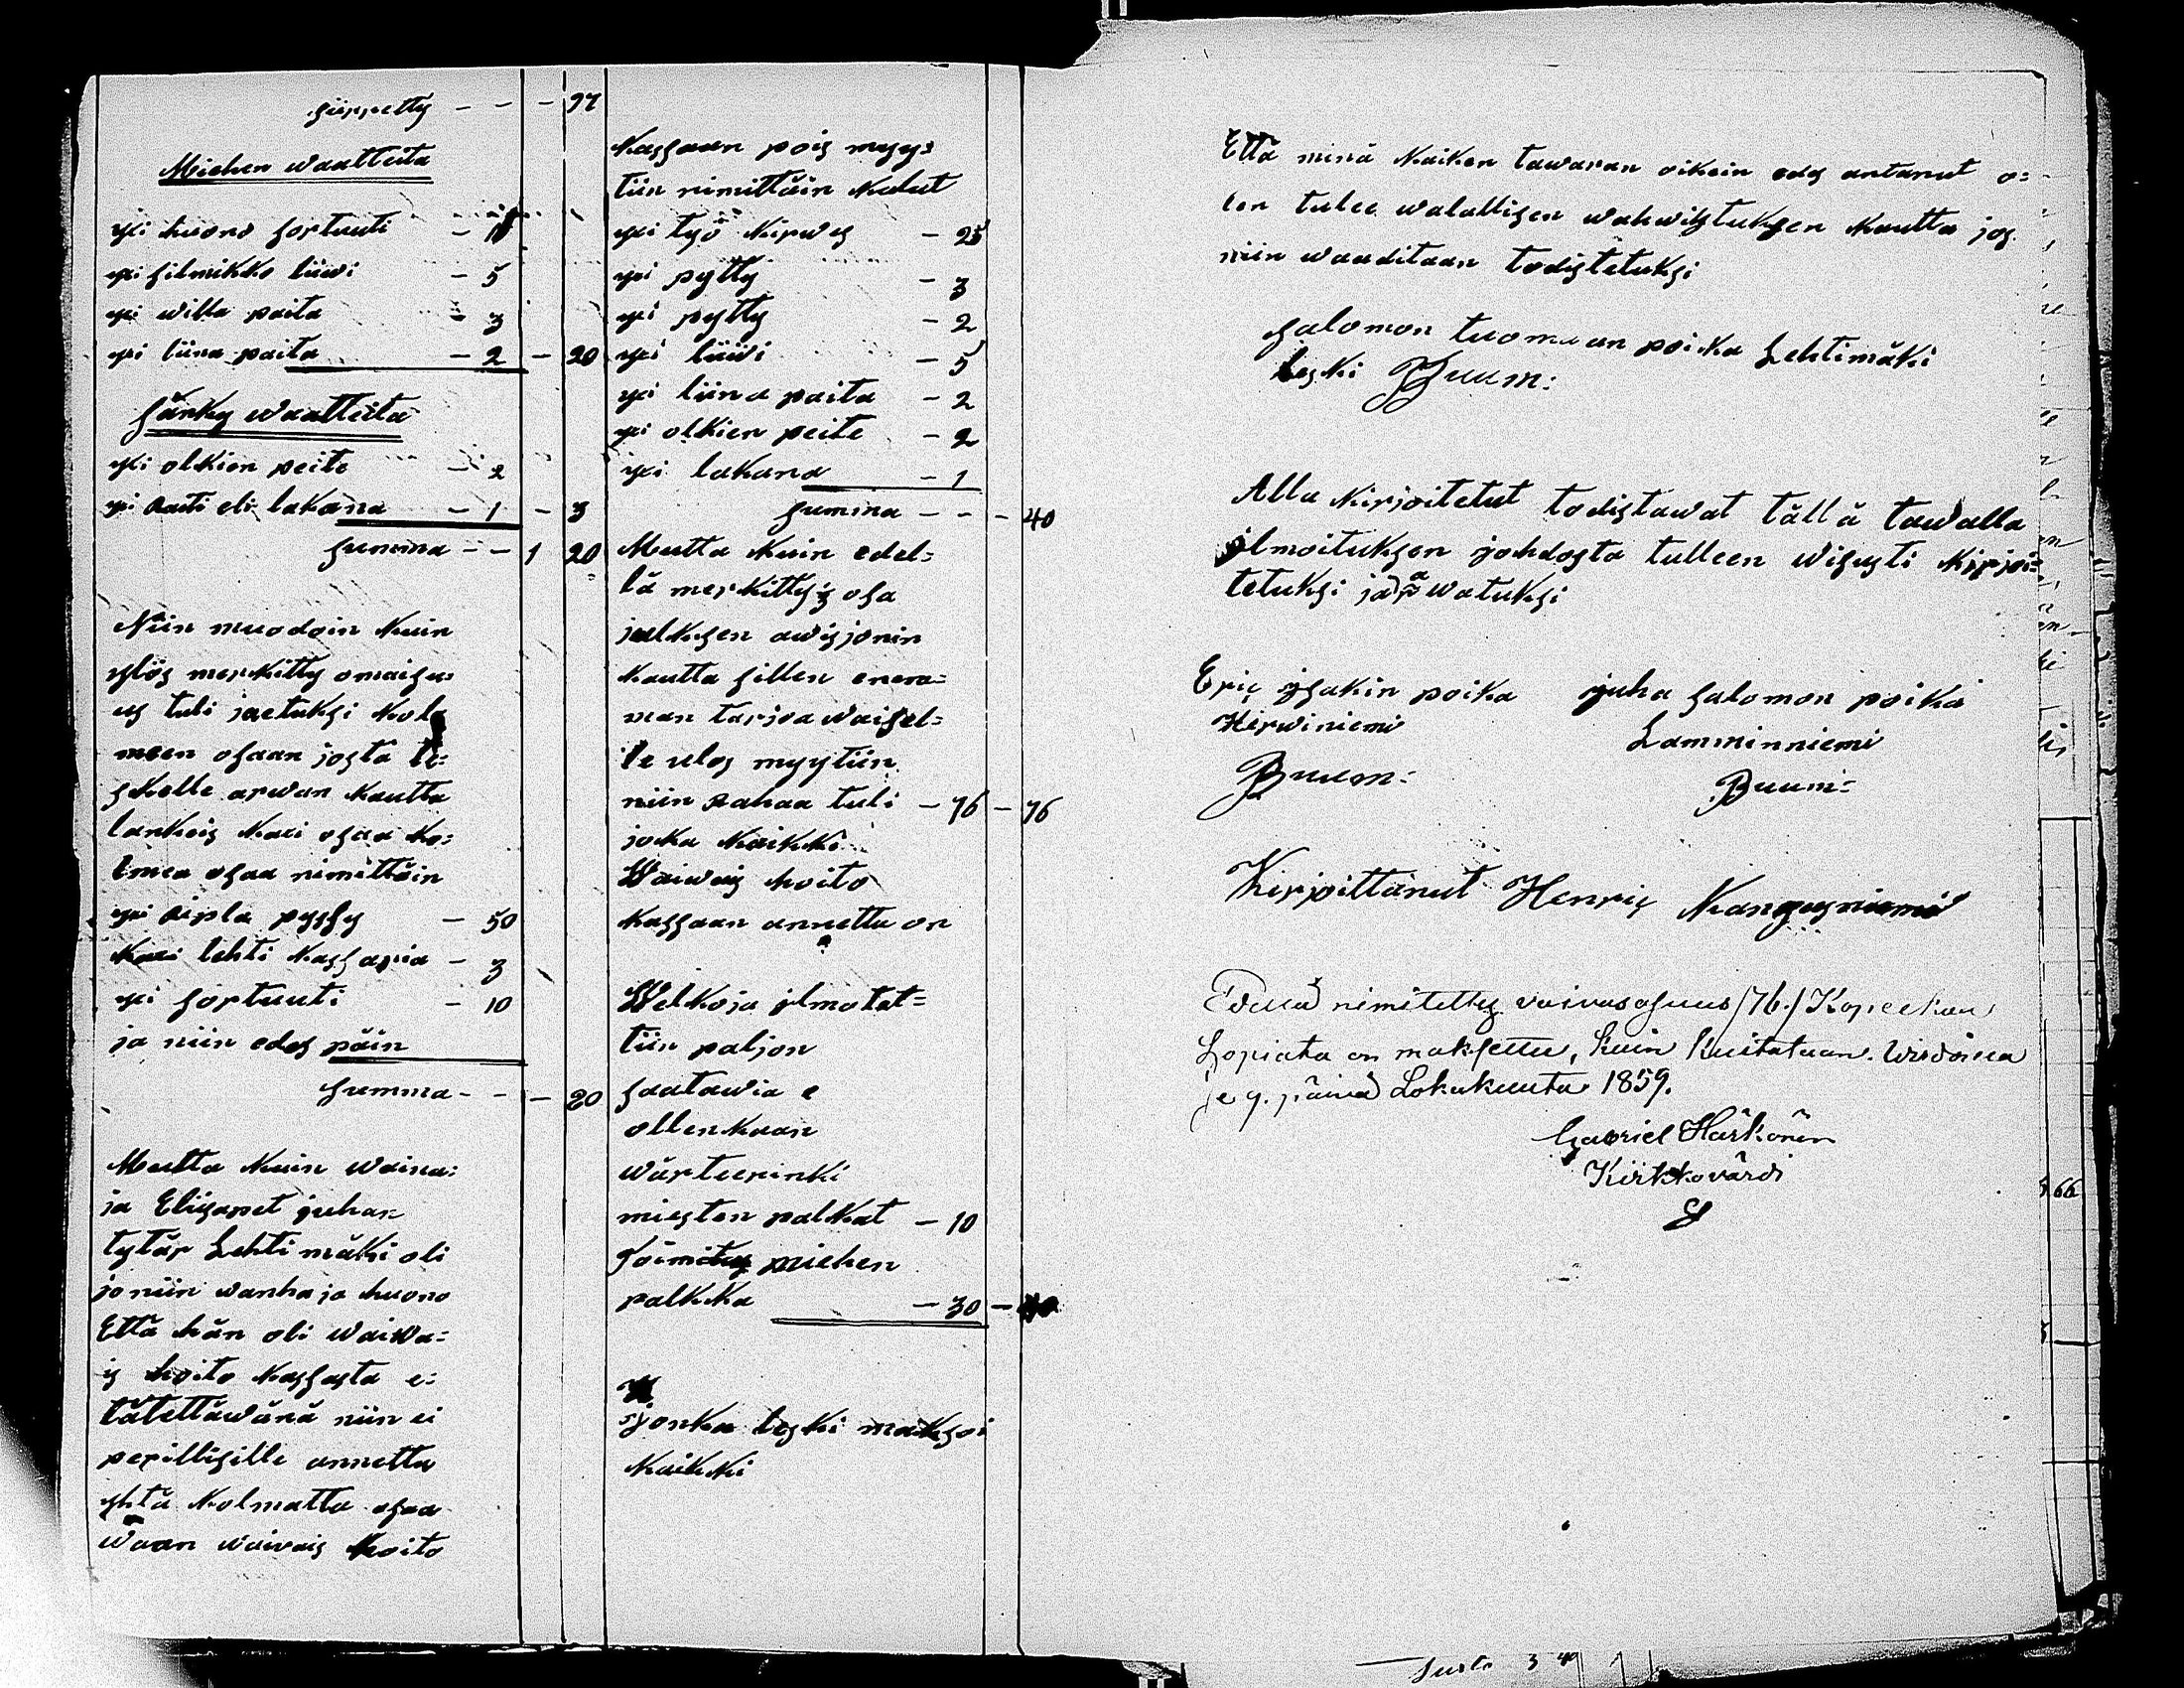 siirretty - - - 97
Miehen waatteita
yxi huono sortuuti - 10
yxi silmikko liiwi - 5
yxi willa paita - 3
yxi liina paita - 2 - 20
Sänky waatteita
yxi olkien peite - 2
yxi raati eli lakana - 1 - 3
summa - - 1 20
Niin muodoin kuin
ylös merkitty omaisu:
us tuli jaetuksi kol
meen osaan josta le:
skelle arwan kautta
lankeis kaxi osaa ko:
lmea osaa nimittäin
yxi pipla pyssy - 50
kaxi lehti kassaria - 3
yxi sortuuti - 10
ja niin edes päin
summa - - - 80
Mutta kuin waina:
ja Elisapet juhan
tytär Lehtimäki oli
jo niin wanha ja huono
Että hän oli waiwa:
is hoito kassasta e:
lätettäwänä niin ei
perillisille annettu
yhtä kolmatta osaa
waan waiwais hoito
kassaan pois myy:
tiin nimittäin kalut
yxi työ kirwes - 25
yxi pytty - 3
yxi pytty - 2
yxi liiwi - 5
yxi liina paita - 2
yxi olkien peite - 2
yxi lakana - 1
summa - - - 40
Mutta kuin edel:
lä merkitty is osa
julkisen awisjonin
kautta sillen enem:
män tarjoawaisel:
le ulos myytiin
niin rahaa tuli - 76 - 76
joka kaikki
Waiwais hoito
kassaan annettu on
Welkoja ilmotet:
tiin paljon
saatawia e
ollenkaan
wärteerinki
miesten palkat - 10
Toimitus miehen
palkka - 30 - 40
jonka leski maksoi
kaikki
Että minä kaiken tawaran oikein edes antanut o:
len tulee walallisen wahwistuksen kautta jos
niin waaditaan todistetuksi
Salomon tuomaan poika Lehtimäki
leski Puum:
Alla kirjoitetut todistawat tällä tawalla
ilmoituksen johdosta tulleen wisusti kirjoi:
tetuksi ja arwatuksi
Eric jsakin poika
Hirwiniemi
Puum:
juha Salomon poika
Lamminniemi
Puum:
Kirjoittanut Henric Kangasniemi
Edellä nimitetty vaivasosuus /76./ Kopeekaa
Hopiata on maksettu, kuin kuitataan. Wirdoissa
je 9. päivä Lokakuuta 1859.
Gabriel Härkönen
Kirkkovärdi
66